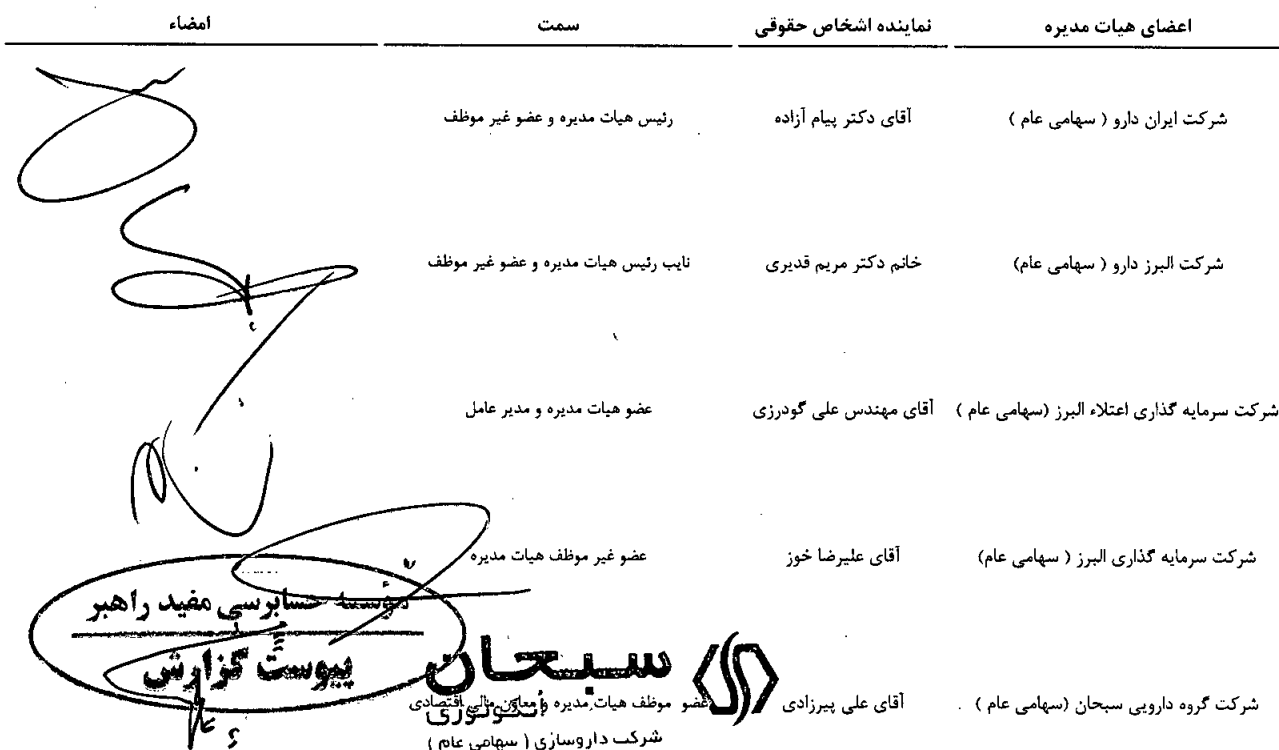 اعضای هیات مدیره نماینده اشخاص حقوقی سمت امضاء
شرکت ایران دارو ( سهامی عام ) آقای دکتر پیام آزاده رئیس هیات مدیره و عضو غیر موظف
شرکت البرز دارو ( سهامی عام) خانم دکتر مریم قدیری نایب رئیس هیات مدیره و عضو غیر موظف
شرکت سرمایه گذاری اعتلاء البرز (سهامی عام ) آقای مهندس علی گودرزی عضو هیات مدیره و مدیر عامل
شرکت سرمایه گذاری البرز ( سهامی عام) آقای علیرضا خوز عضو غیر موظف هیات مدیره
شرکت گروه دارویی سبحان (سهامی عام ) آقای علی پیرزادی عضو موظف هیات مدیره و معاون مالی اقتصادی
موسسه حسابرسی مفید راهبر
پیوست گزارش
سبحان
انکولوژی
شرکت داروسازی ( سهامی عام )